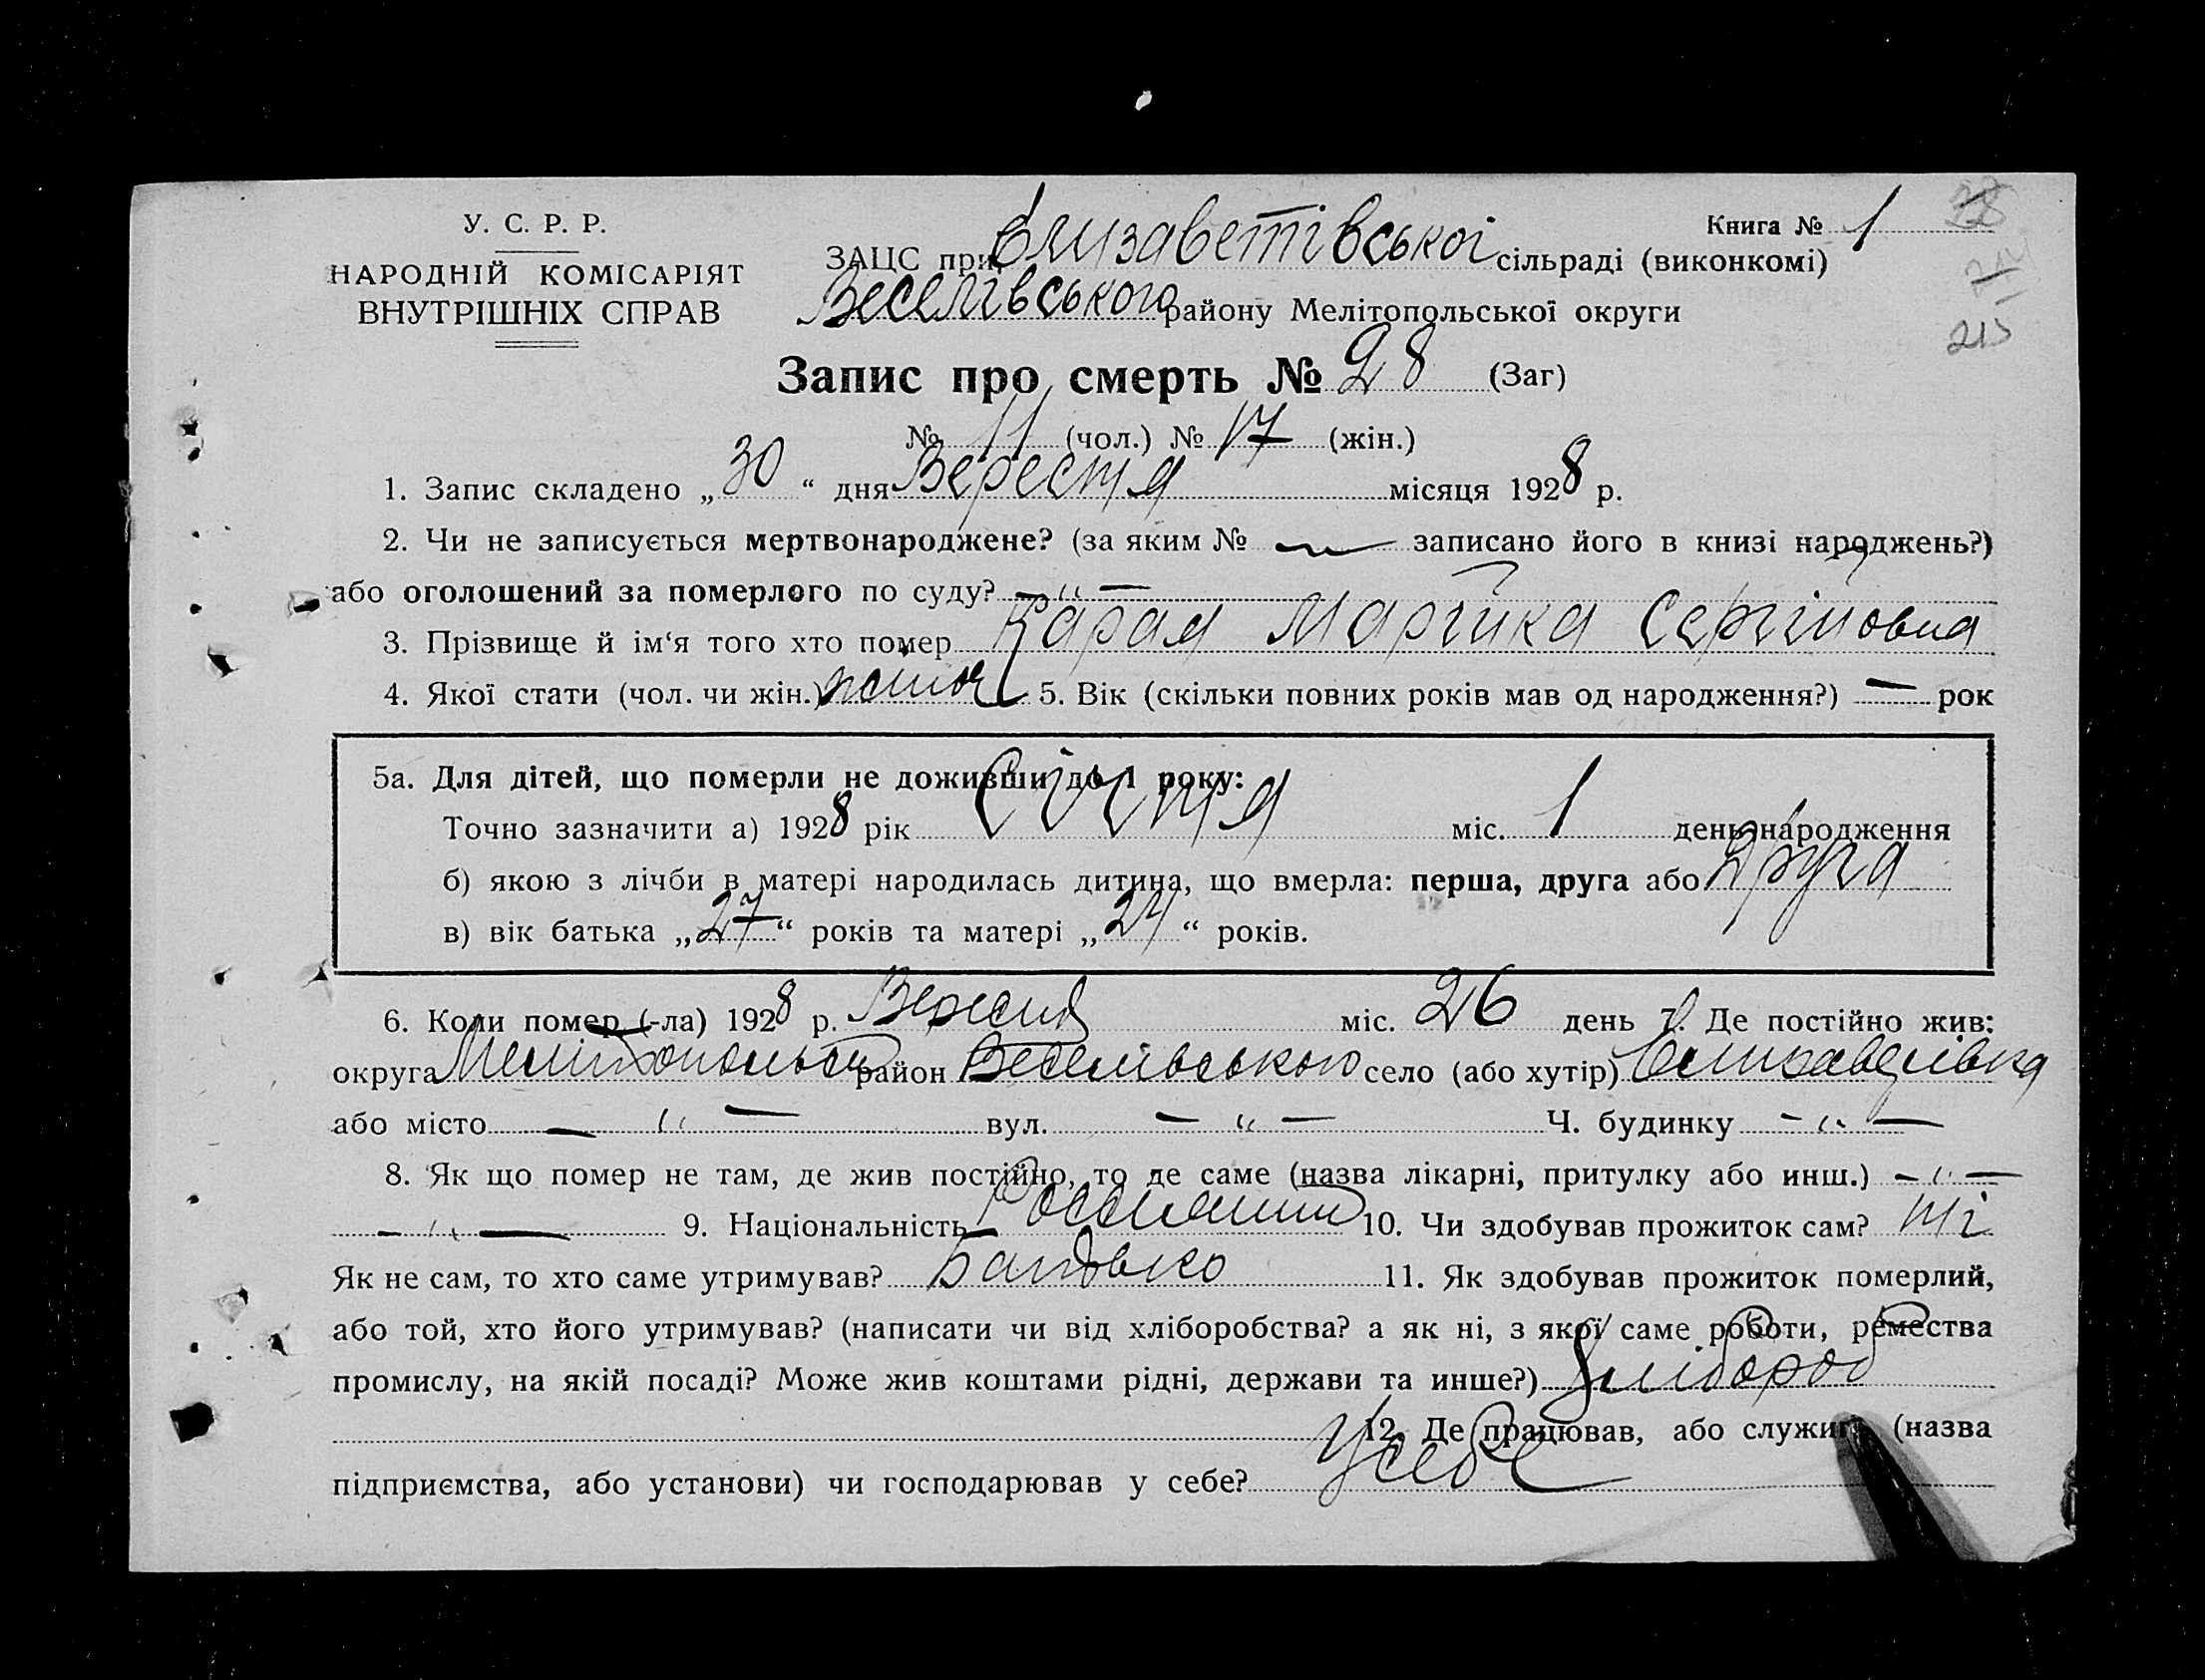 У. С. Р. Р.
НАРОДНІЙ КОМІСАРІЯТ
ВНУТРІШНІХ СПРАВ
Книга № 1
ЗАЦС при Єлизаветівської сільраді (виконкомі)
Веселівського району Мелітопольської округи
215
Запис про смерть № 28 (Заг)
№ 11 (чол.) № 17 (жін.)
1. Запис складено „30“ дня Вересня місяця 1928 р.
2. Чи не записується мертвонароджене? (за яким № — записано його в книзі народжень?)
або оголошений за померлого по суду? — „ —
3. Прізвище й ім‘я того хто помер Сергійовна
4. Якої стати (чол. чи жін.) жіноч 5. Вік (скільки повних років мав од народження?) — рок
5а. Для дітей, що померли не доживши до 1 року:
Точно зазначити а) 1928 рік Січня міс. 1 день народження
б) якою з лічби в матері народилась дитина, що вмерла: перша, друга або друга
в) вік батька „27“ років та матері „24“ років.
6. Коли помер (-ла) 1928 р. Вересня міс. 26 день 7. Де постійно жив:
округа район Веселівського село (або хутір) Єлизаветівка
або місто — „ — вул. — „ — Ч. будинку — „ —
8. Як що помер не там, де жив постійно, то де саме (назва лікарні, притулку або инш.) — „ —
— „ — 9. Національність 10. Чи здобував прожиток сам? Ні
Як не сам, то хто саме утримував? Батько 11. Як здобував прожиток померлий,
або той, хто його утримував? (написати чи від хліборобства? а як ні, з якої саме роботи, ремества
промислу, на якій посаді? Може жив коштами рідні, держави та инше?) Хлібороб
12. Де працював, або служив (назва
підприємства, або установи) чи господарював у себе? У себе